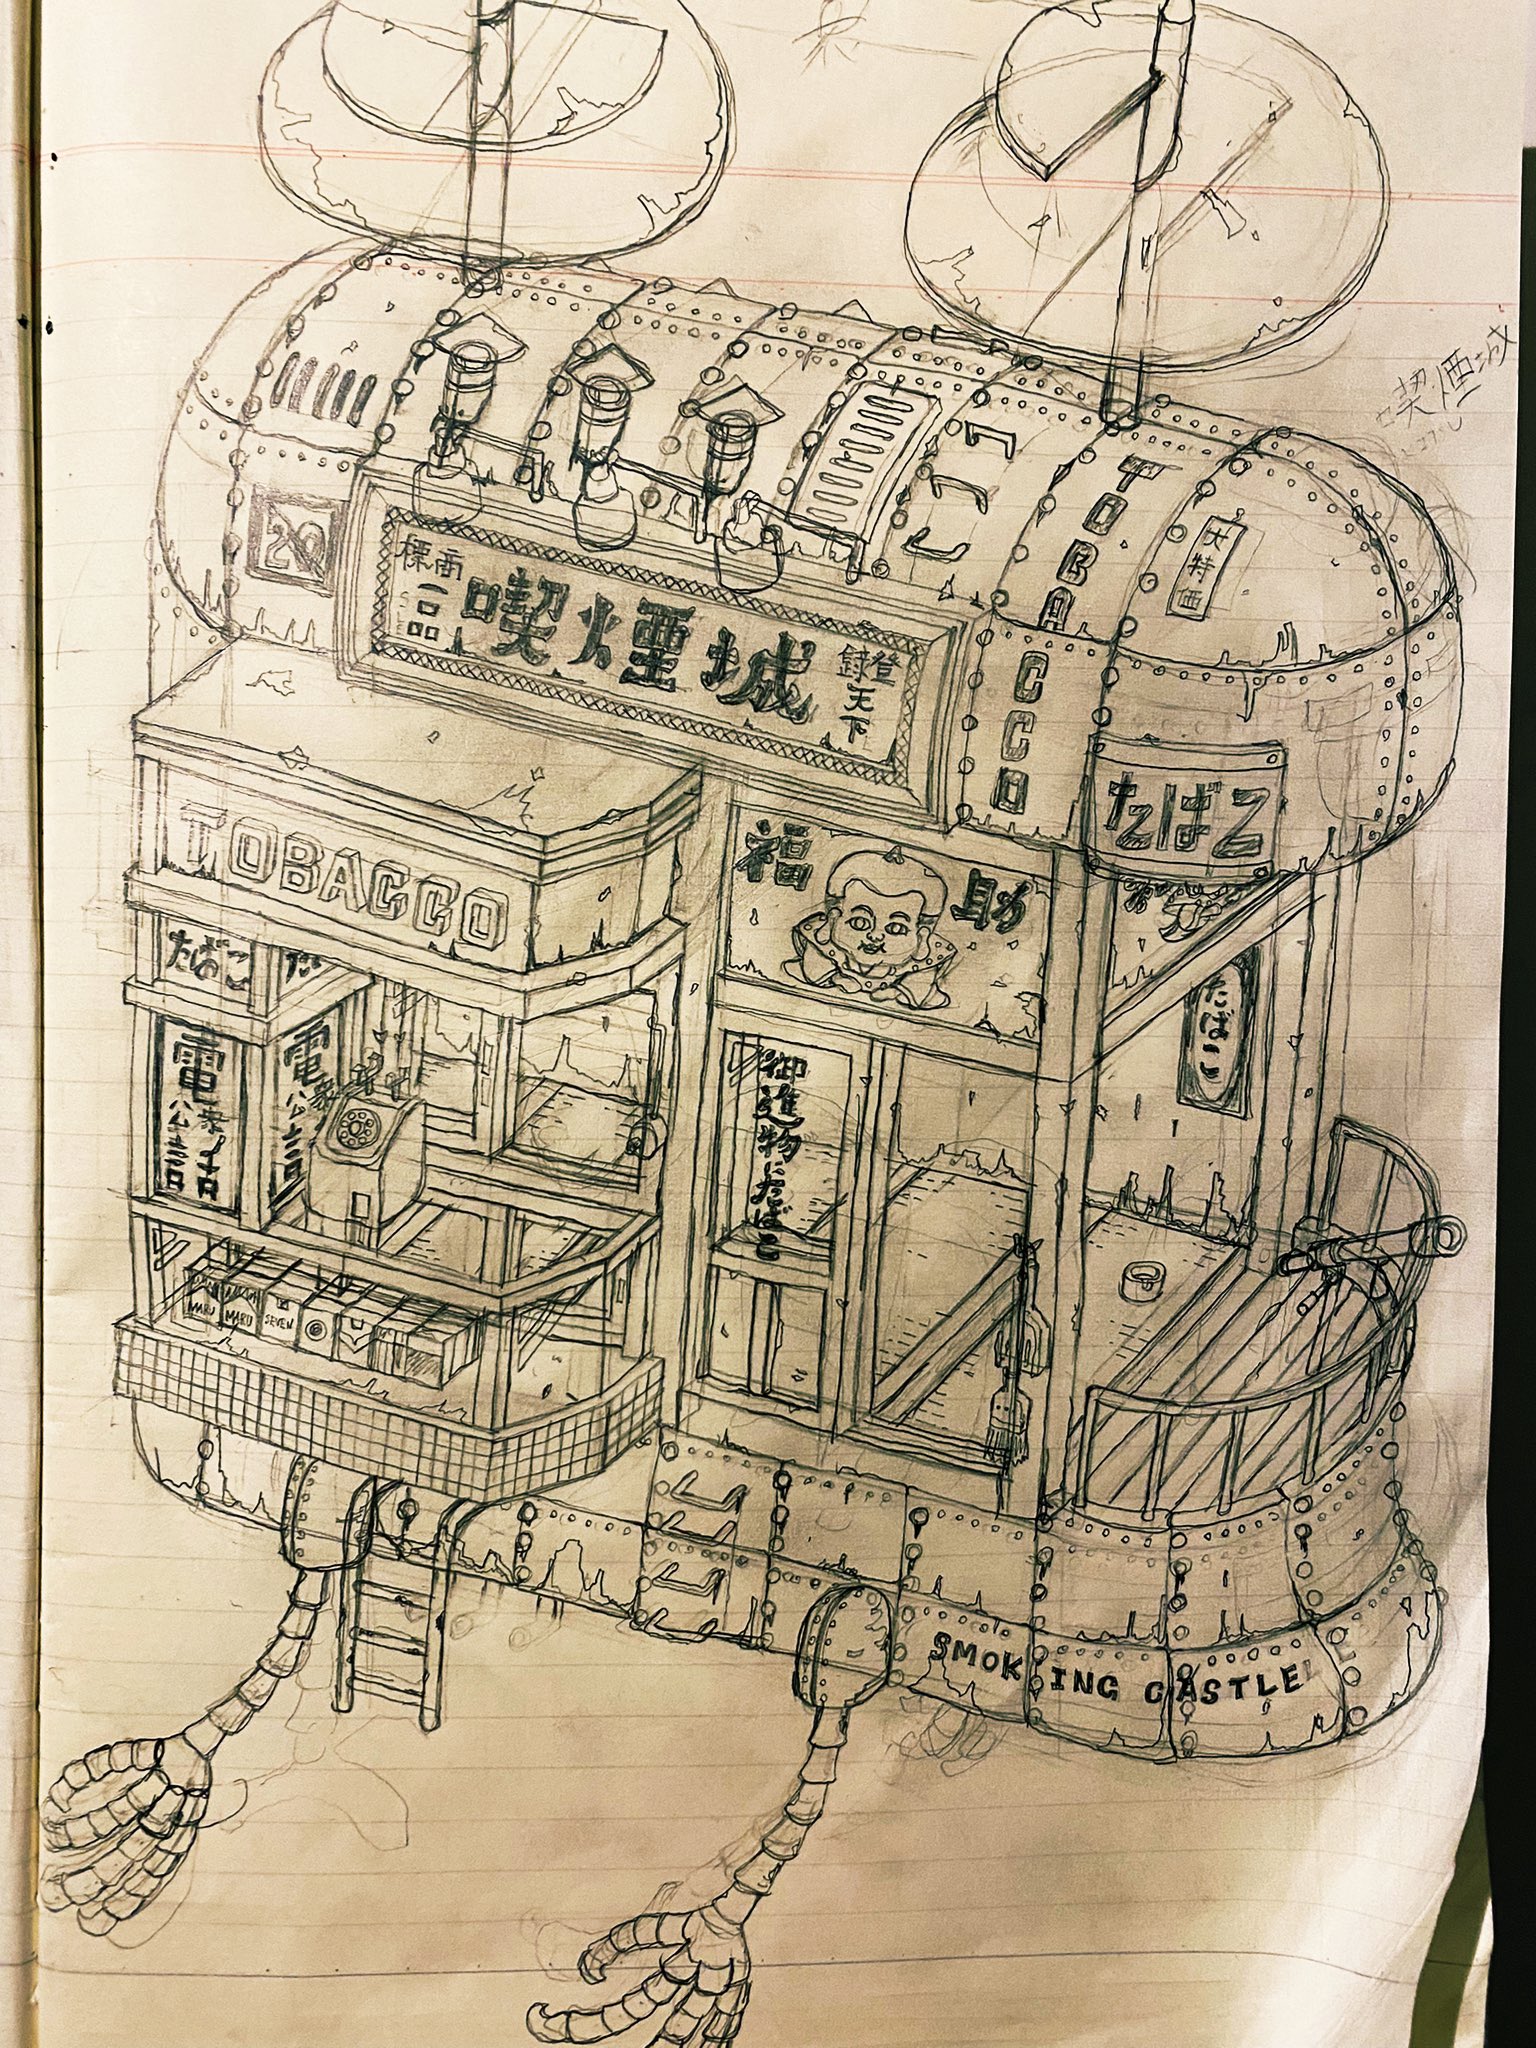 喫煙城
20
TOBACCO
大特価
商標
一品
喫煙城
登録
天下
たばこ
TOBACCO
福助
たばこ
たば
たばこ
電話
公衆
電話
公衆
御進物にたばこ
MARU
MARU
SEVEN
SMOKING CASTLE